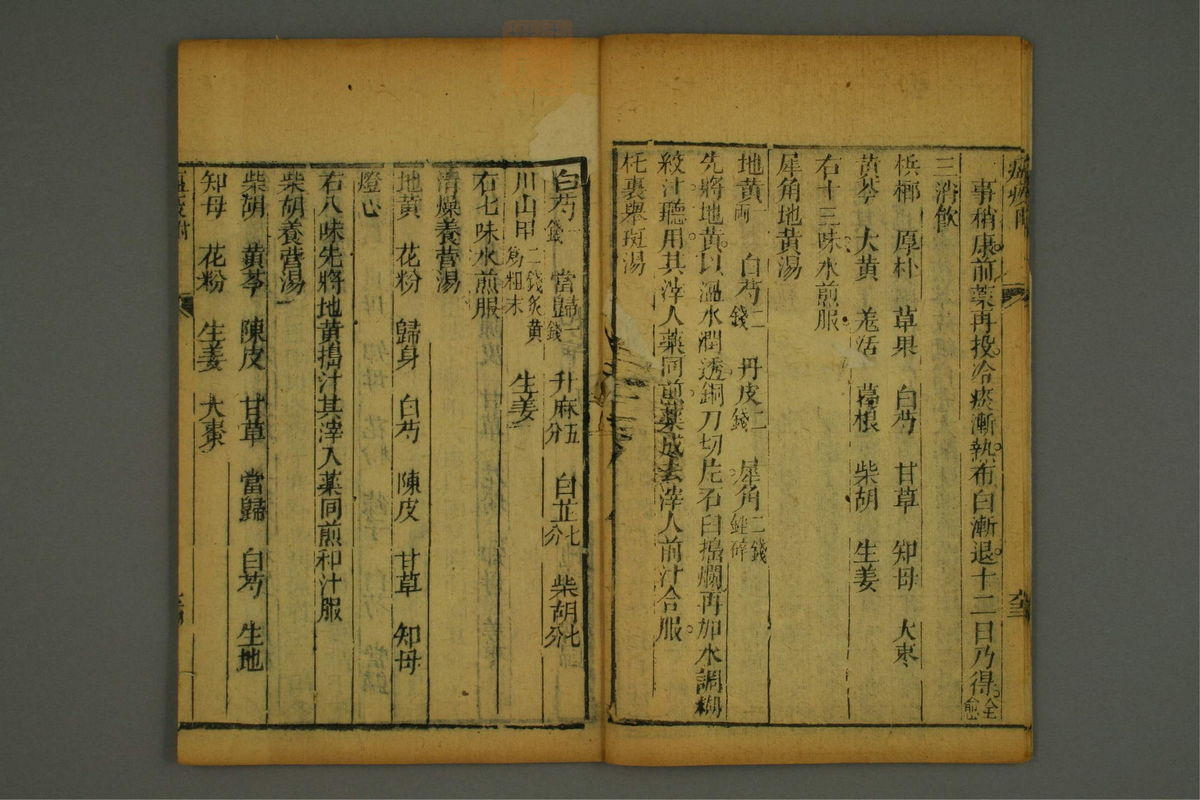 事稍康前藥再投冷痰漸熱布白漸退十二日乃得全愈
三消飲
梹榔 厚朴 草果 白芍 甘草 知母 大枣
黃芩 大黃 羌活 葛根 柴胡 生姜
右十三味水煎服
犀角地黃湯
地黃一両 白芍二錢 丹皮二錢 犀角二錢銼碎
先將地黃以溫水潤透銅刀切片石臼搗爛再加水調糊
絞汁聽用其滓人藥同前藥成去滓人前汁合服
托裏舉斑湯
白芍一錢 當歸一錢 升麻五分 白芷七分 柴胡七分
川山甲二錢炙黃為粗末 生姜
右七味水煎服
清燥養營湯
地黃 花粉 歸身 白芍 陳皮 甘草 知母
燈心
右八味先將地黃搗汁其滓入藥同煎和汁服
柴胡養營湯
柴胡 黃芩 陳皮 甘草 當歸 白芍 生地
知母 花粉 生姜 大棗